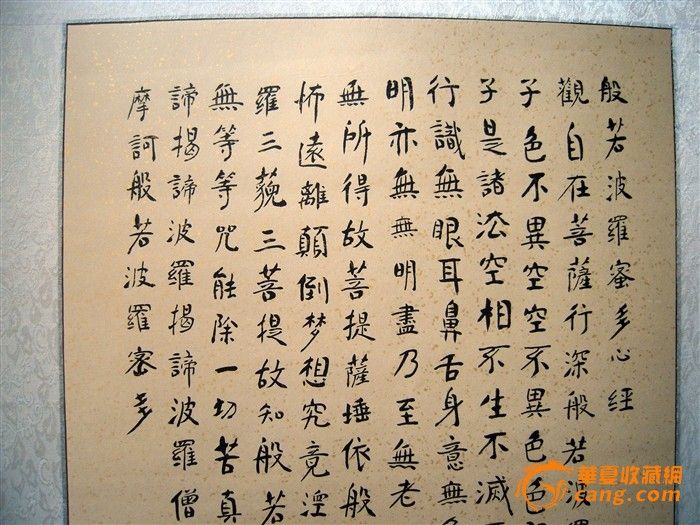 般若波羅蜜多心經
觀自在菩薩行深般若波羅
子色不異空空不異色色
子是諸法空相不生不滅不
行識無眼耳鼻舌身意無色
明亦無無明盡乃至無老
無所得故菩提薩埵依般
怖遠離顛倒梦想究竟涅
羅三藐三菩提故知般若
無等等咒能除一切苦真
諦揭諦波羅揭諦波羅僧
摩訶般若波羅蜜多
華夏收藏網
cang.com